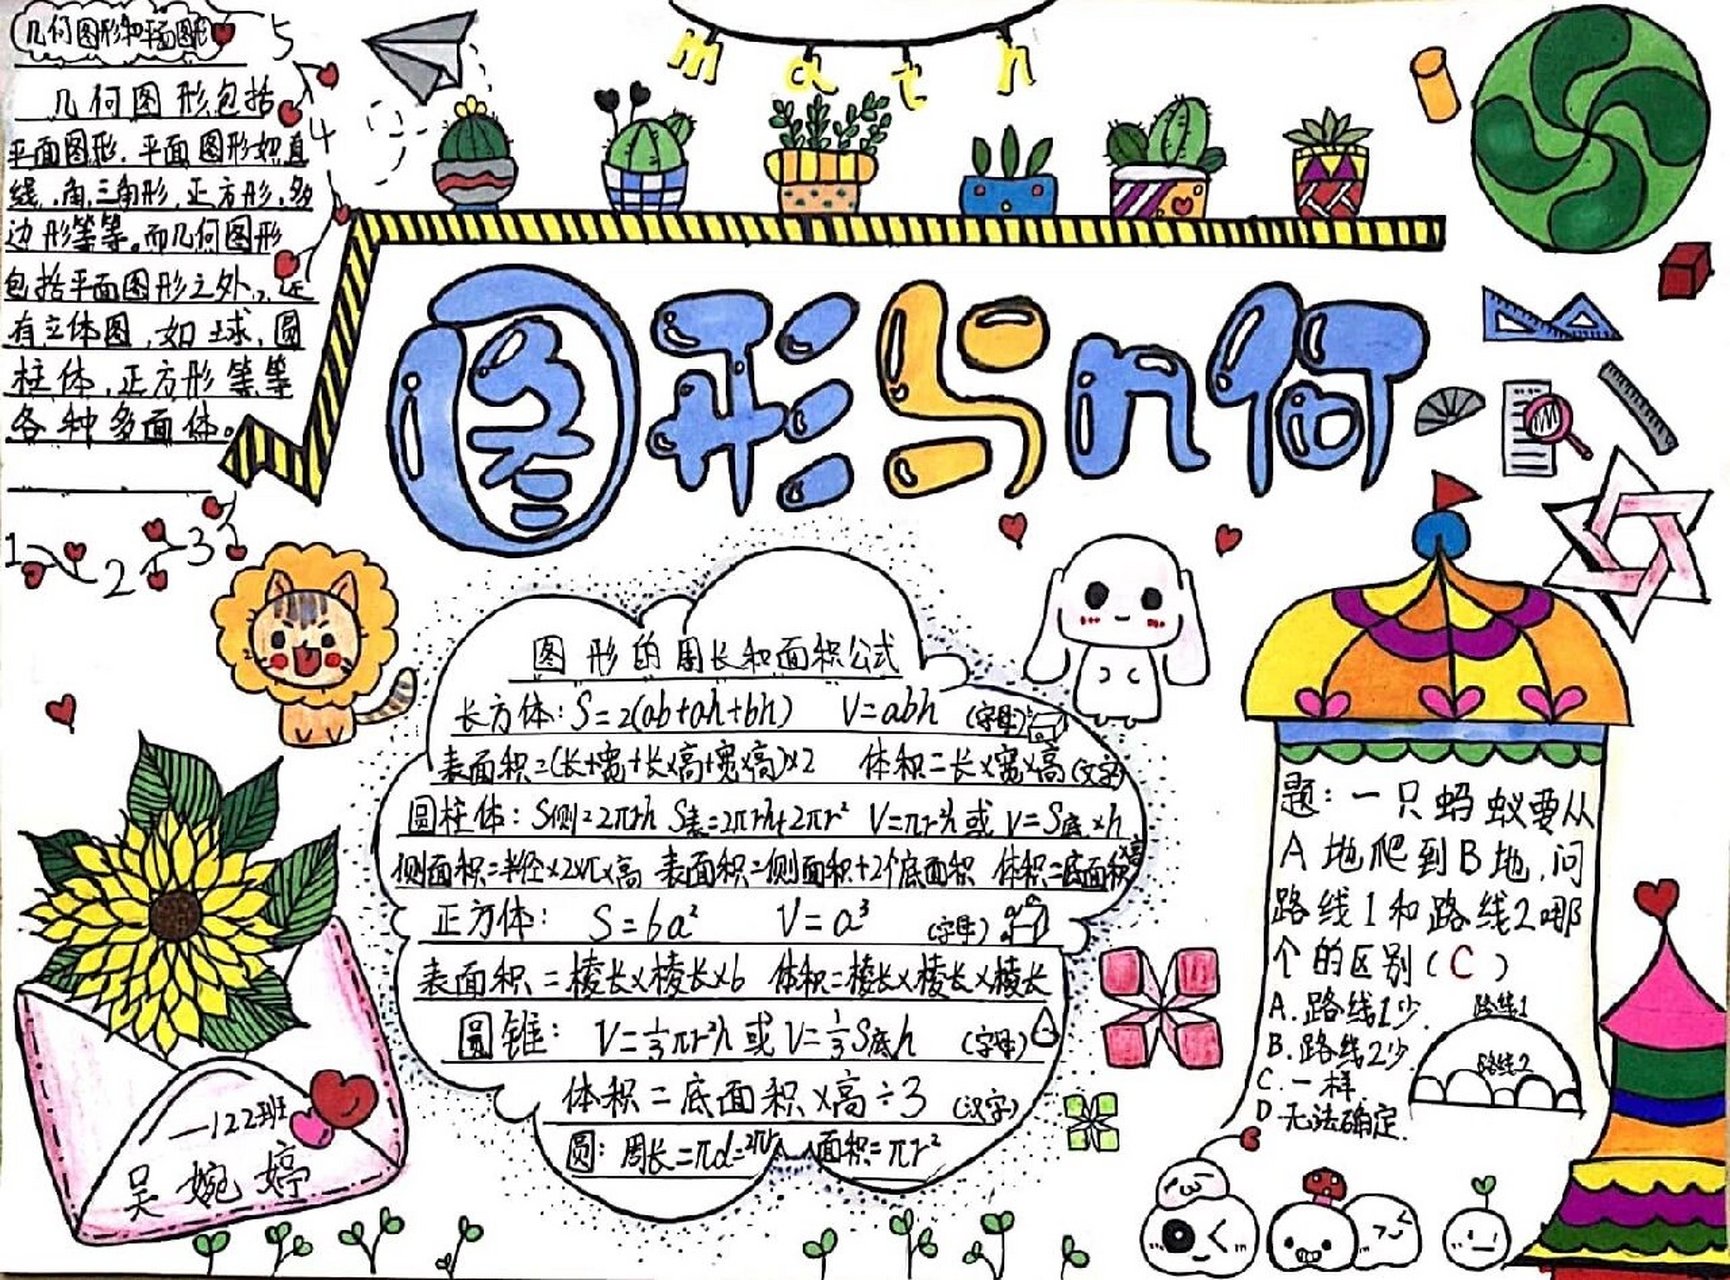 几何图形和平面图形
几何图形包括
平面图形,平面图形如直
线,角,三角形,正方形,多
边形等等。而几何图形
包括平面图形之外,还
有立体图,如球,圆
柱体,正方形等等
各种多面体。
5
4
1 2 3
math
图形与几何
图形的周长和面积公式
长方体:S=2(ab+ah+bh) V=abh (字母)
表面积=(长+宽+长×高+宽×高)×2 体积=长×宽×高(文字)
圆柱体:S侧=2πrh S表=2πrh+2πr² V=πr²h或V=S底×h
侧面积=半径×2×π×高 表面积=侧面积+2个底面积 体积=底面积×高
正方体: S=6a² V=a³ (字母)
表面积=棱长×棱长×6 体积=棱长×棱长×棱长
圆锥: V=⅓πr²h或V=⅓S底h (字母)
体积=底面积×高÷3 (汉字)
圆:周长=πd=2πr 面积=πr²
题:一只蚂蚁要从
A地爬到B地,问
路线1和路线2哪
个的区别(C)
A.路线1少.
B.路线2少
C.一样
D.无法确定.
路线1
路线2
122班
吴婉婷